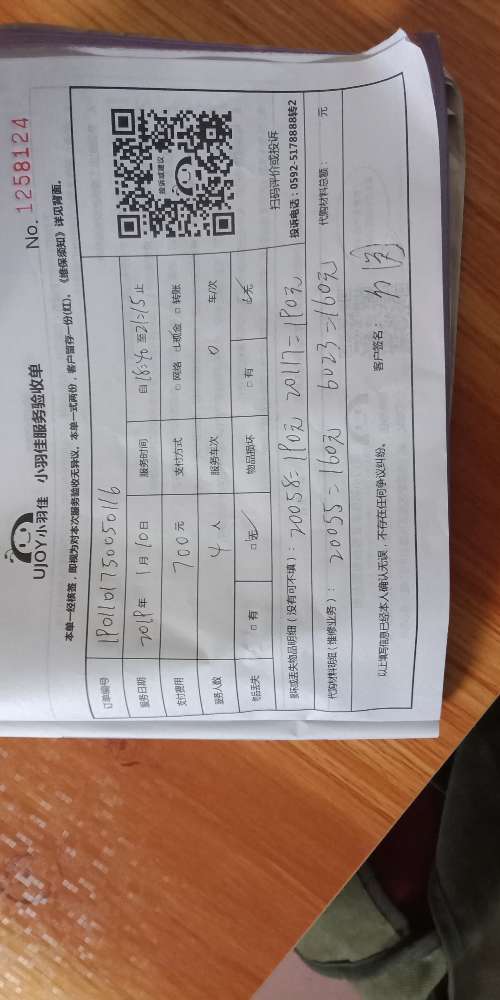 UJOY小羽佳 小羽佳服务验收单
No. 1258124
本单一经核签，即视为对本次服务验收无异议，本单一式两份，客户留存一份(红)。《维保须知》详见背面。
订单编号 1901101750050116
服务日期 2019年 1月10日 服务时间 自18:40至21:15止
支付费用 700元 支付方式 □网络 □现金 □转账
服务人数 4人 服务车次 0 车/次
物品丢失 □有 □无 物品损坏 □有 □无
投诉或建议
扫码评价或投诉
投诉电话：0592-5178888转2
损坏或丢失物品明细（没有可不填）：20058=190元 20117=190元
代购材料明细（维修业务）：20055=160元 6023=160元 代购材料总额： 元
以上填写信息已经本人确认无误，不存在任何争议纠纷。 客户签名：